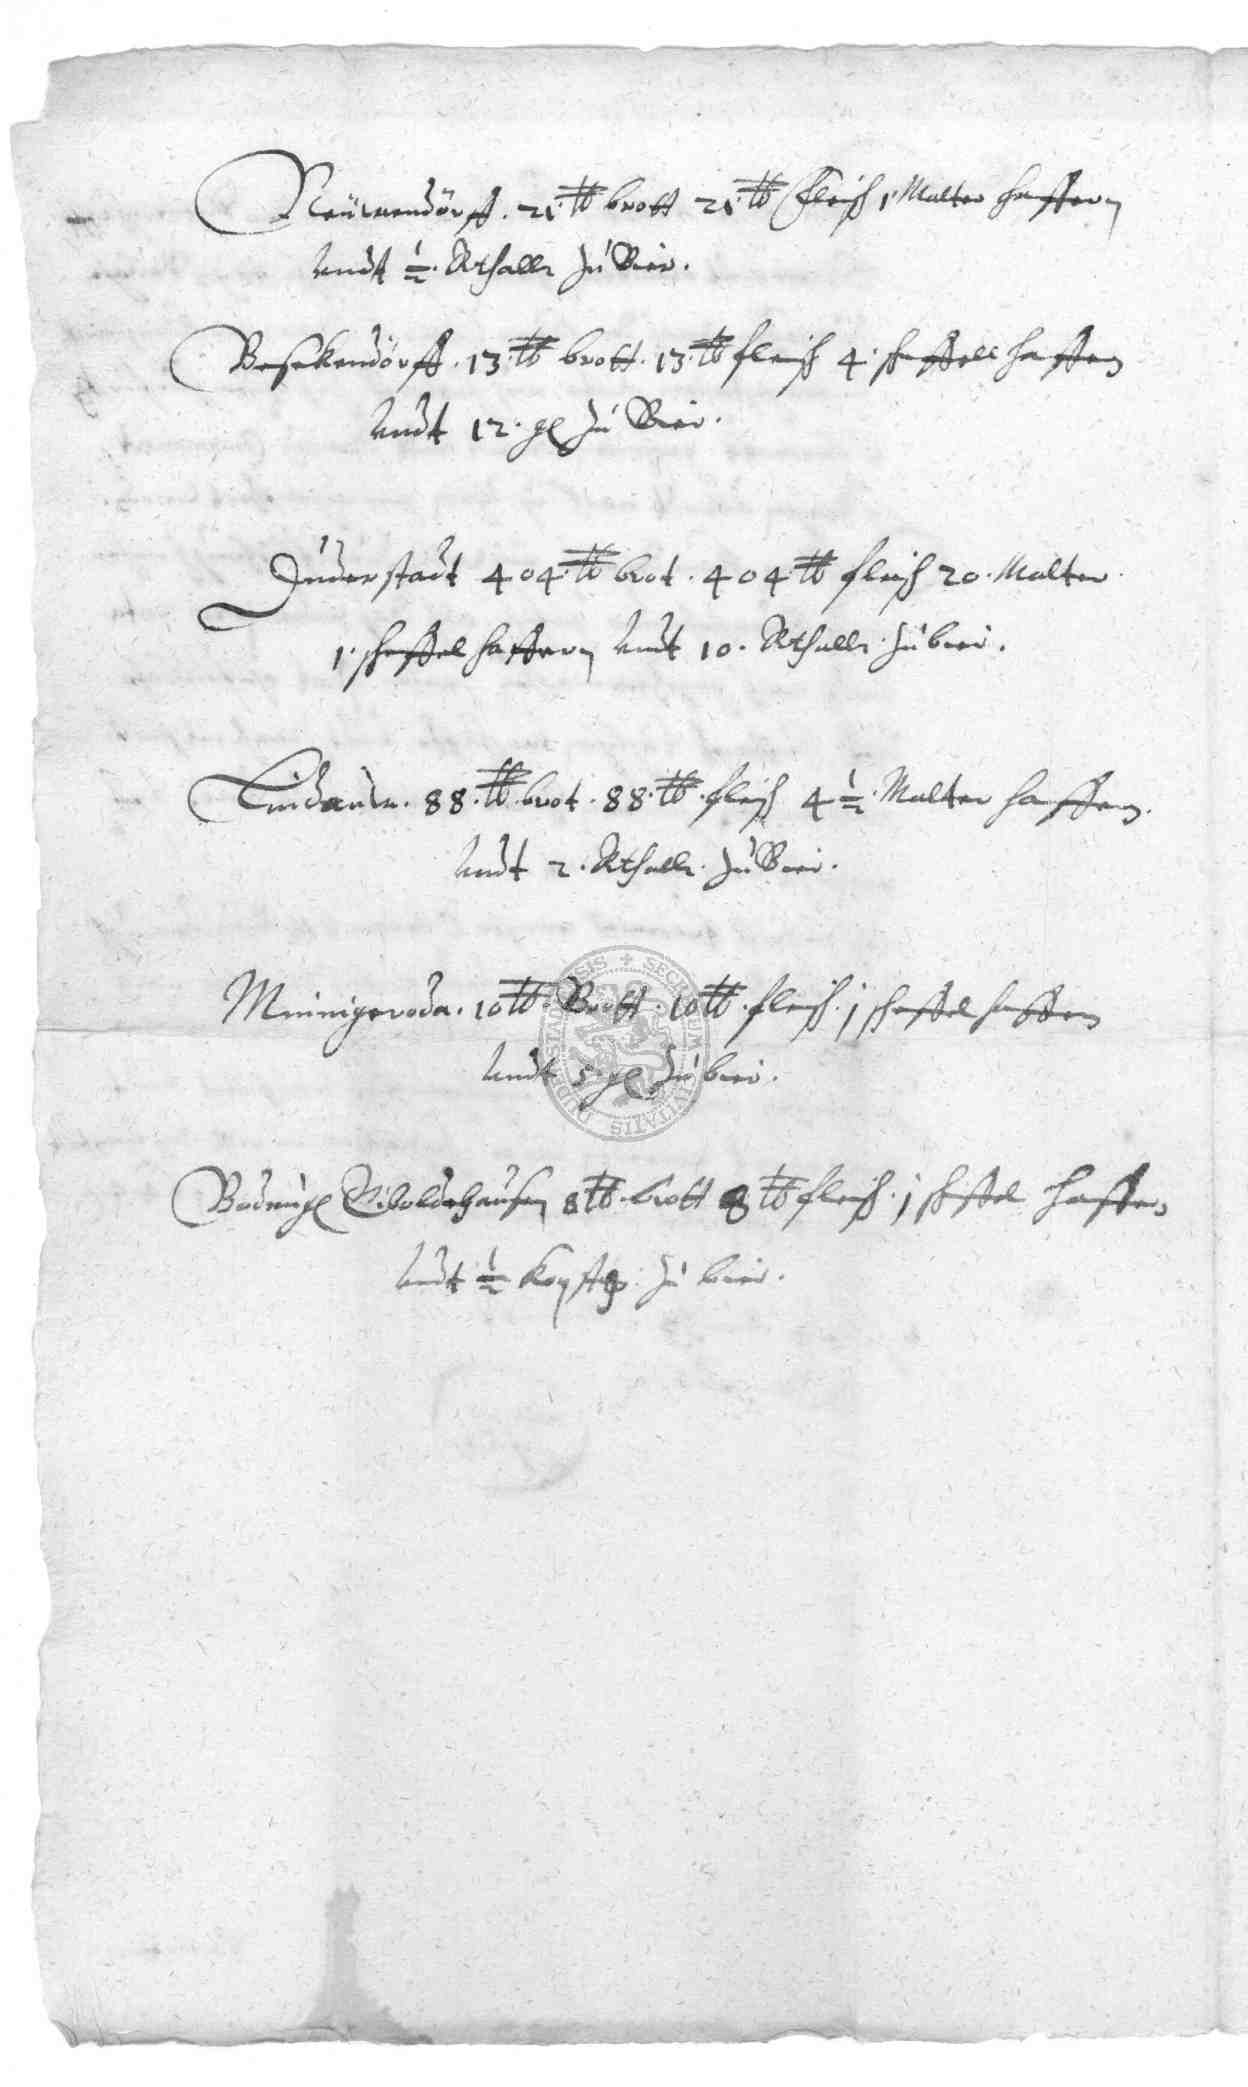 Neüwendörff. 21. ℔ brott 21. ℔ fleisch 1 Malter haffern
undt ½. Rthallr zu Bier.
Besekendörff. 13. ℔ brott. 13. ℔ fleisch 4. scheffell haffern
undt 12. gl zu Bier.
Duderstadt 404. ℔ brot. 404. ℔ fleisch 20. Malter
1. scheffel haffern undt 10. Rthallr. zu bier.
Lindauw. 88. ℔ brot. 88. ℔. fleisch 4 ½. Malter haffern.
undt 2. Rthallr. zu Bier.
Minnigeroda. 10 ℔. Brott. 10 ℔. fleisch. j scheffel haffern
undt 5. gl zu bier.
SECRETUM CIVITATIS DUDERSTADENSIS
Riboldehausen 8 ℔. brott 8 ℔ fleisch. j scheffel haffern
undt ½ zu bier.